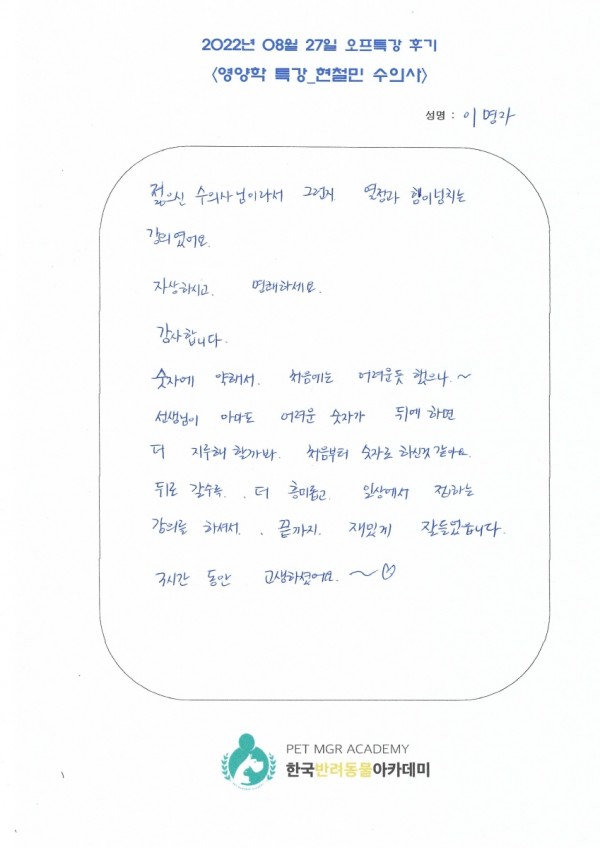 2022년 08월 27일 오프특강 후기
<영양학 특강_현철민 수의사>
성명 : 이명자
젊으신 수의사님이라서 그런지 열정과 힘이넘치는
강의였어요.
자상하시고. 명쾌하세요.
감사합니다.
숫자에 약해서. 처음에는 어려운듯 했으나.~
선생님이 아마도 어려운 숫자가 뒤에 하면
더 지루해 할까봐. 처음부터 숫자로 하신것 같아요.
뒤로 갈수록. . 더 흥미롭고. 일상에서 접하는
강의를 하셔서. . 끝까지. 재밌게 잘들었습니다.
3시간 동안 고생하셨어요. ~♡
PET MGR ACADEMY
한국반려동물아카데미